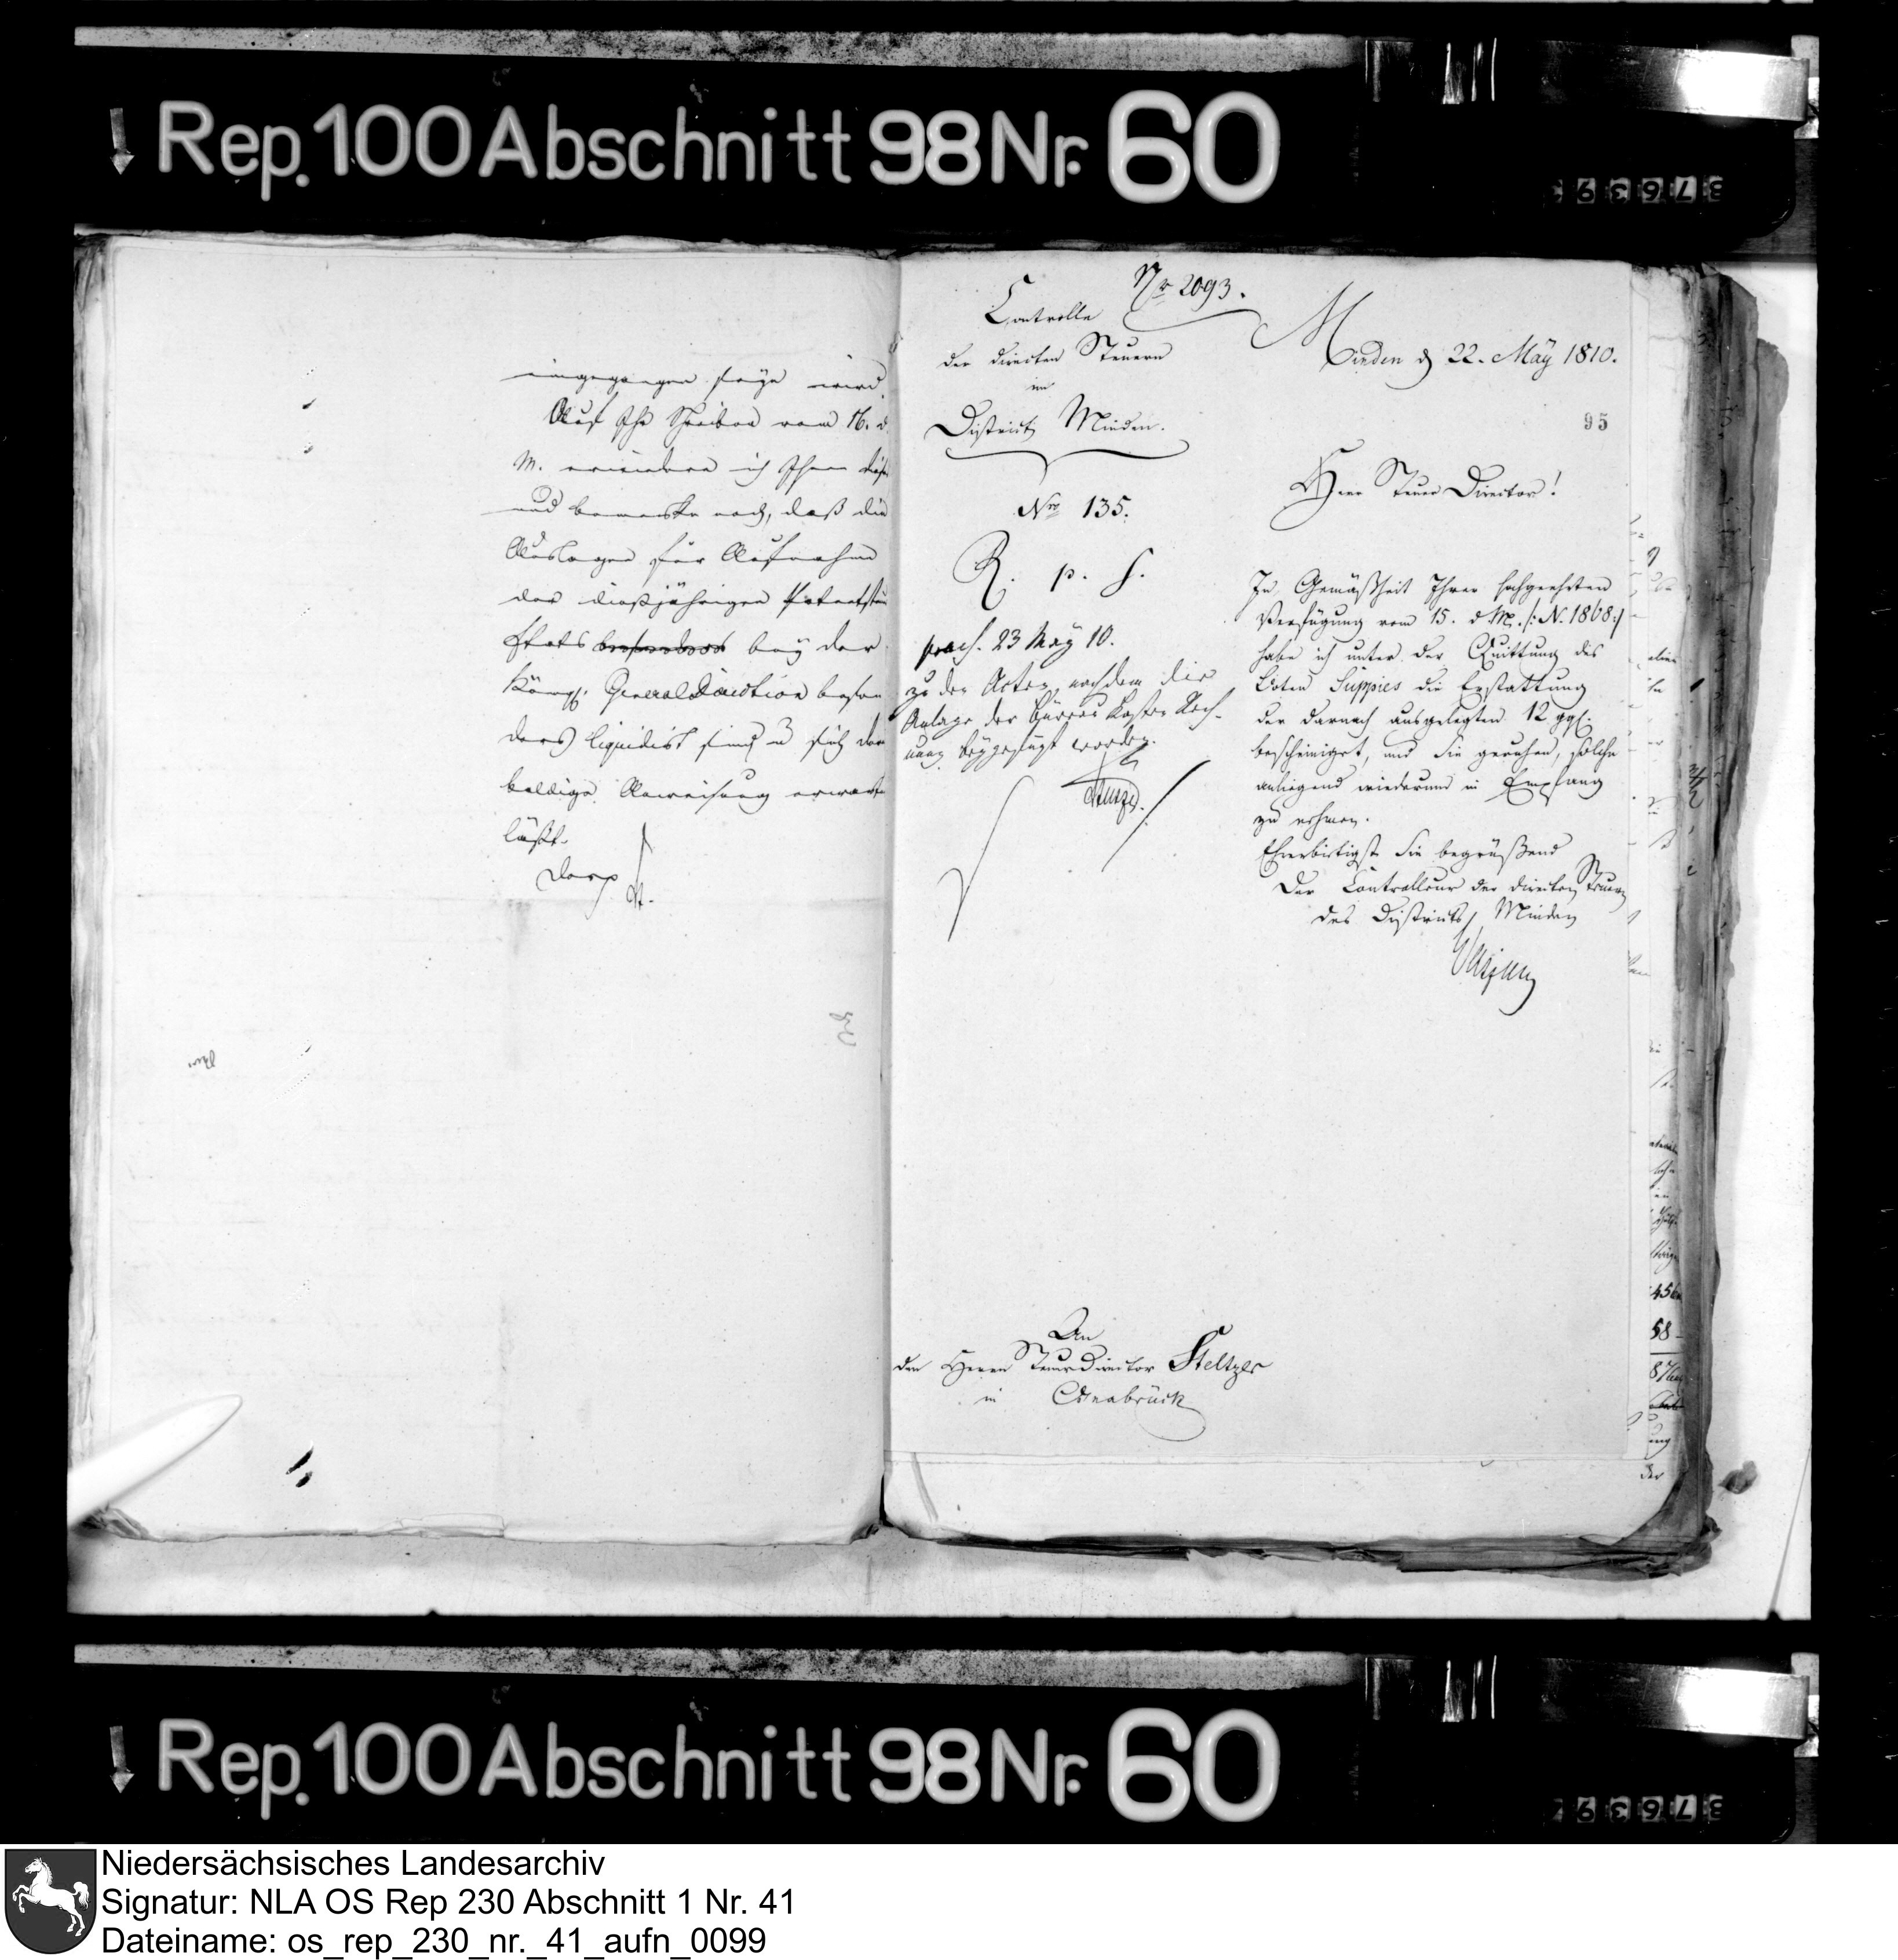 Rep. 100 Abschnitt 98 Nr. 60
eingegangen seyn wird.
Auf Ihr Schreiben vom 16. d.
M. erwiedere ich Ihnen dieses
und bemerke noch, daß die
Auslagen für Aufnahme
der dießjährigen Patentsteuer
Etats besonders bey der
Königl. General Direction beson
ders liquidirt sind u sich der
baldige Anweisung erwarten
läßt.
Nr 2093.
Controlle
der directen Steuern
im
District Minden.
Minden d 22. May 1810.
95
Herr Steuer Director!
Nro 135.
R. p. s.
praes. 23 May 10.
zu den Acten, nachdem die
Anlage der Büreau Kosten Rech-
nung beygefügt worden.
Steltzer.
In Gemäßheit Ihrer hochgeehrten
Verfügung vom 15. d M. /: N. 1868 :/
habe ich unter der Quittung des
Boten Suppies die Erstattung
der darnach ausgelegten 12 ggl.
bescheiniget, und Sie geruhen, solche
anliegend wiederum in Empfang
zu nehmen.
Ehrerbietigst Sie begrüßend
Der Controlleur der directen Steuern
des Districts Minden
An
den Herrn Steuer Director Steltzer
in Osnabrück
Rep. 100 Abschnitt 98 Nr. 60
Niedersächsisches Landesarchiv
Signatur: NLA OS Rep 230 Abschnitt 1 Nr. 41
Dateiname: os_rep_230_nr._41_aufn_0099